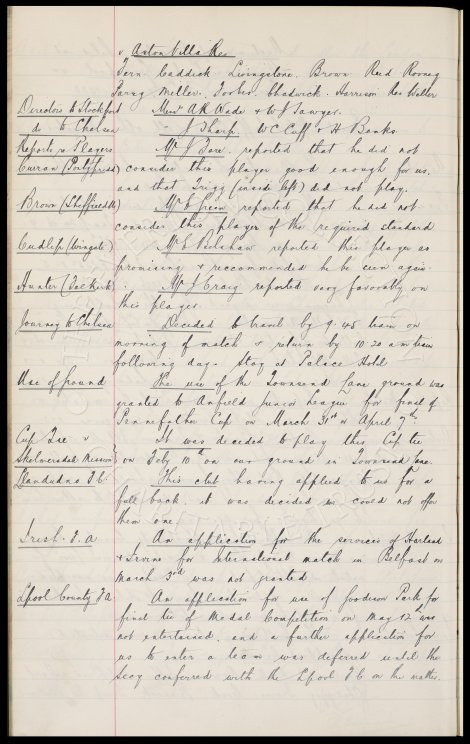 v Aston Villa Res
Fern Caddick Livingstone. Brown Reid Rooney
Parry Miller. Foster. Chadwick. Harrison Res Waller
Directors to Stockport Messrs A R Wade & W J Sawyer.
do to Chelsea J Tharp. W C Cuff & H Banks
Reports re Players Mr J Fare reported that he did not
Curran (Pontypridd) consider this player good enough for us.
and that Trigg (inside left) did not play.
Brown (Sheffield W) Mr E Green reported that he did not
consider this player of the required standard
Cudlip (Wingate) Mr E Belshaw reported this player as
promising & reccommended he be seen again.
Hunter (Falkirk) Mr J Craig reported very favorably on
this player.
Journey to Chelsea Decided to travel by 9.45 train on
morning of match & return by 10.20 a m train
following day. Stay at Palace Hotel
Use of Ground The use of the Townsend Lane ground was
granted to Anfield Junior League for final of
Pennefather Cup on March 31st & April 7th.
Cup Tie v It was decided to play this Cup tie
Skelmersdale Mission on Feby 10th on our ground in Townsend Lane.
Llandudno F C. This club having applied to us for a
full back, it was decided we could not offer
them one.
Irish. F. A. An application for the services of Harland
& Irvine for International match in Belfast on
March 3rd was not granted
Lpool County F A An application for use of Goodison Park for
final tie of Medal Competition on May 12th was
not entertained, and a further application for
us to enter a team was deferred until the
Secy conferred with the Lpool F C on the matter.